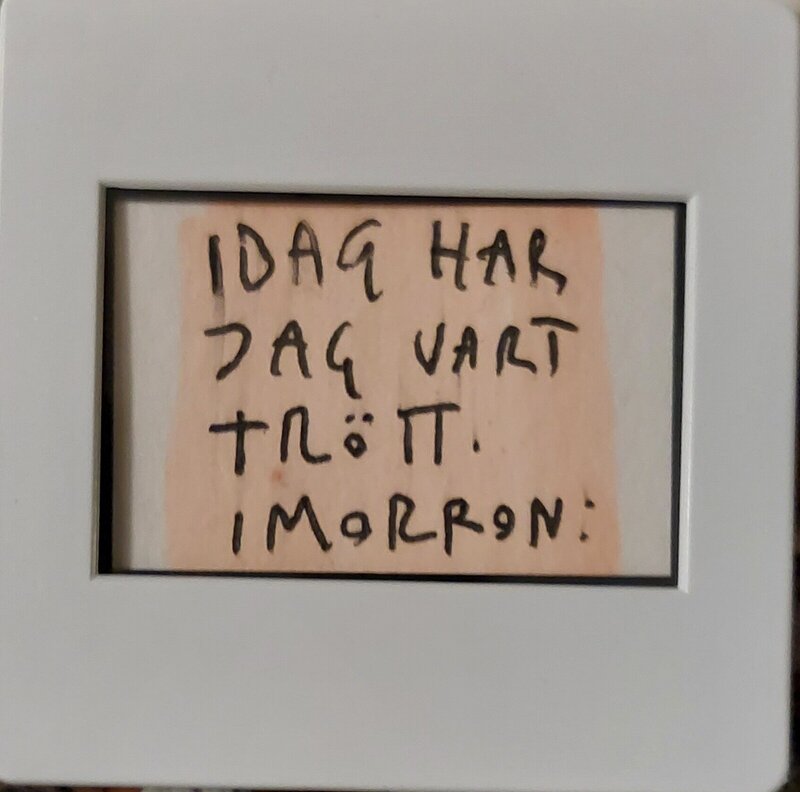 IDAG HAR
JAG VART
TRÖTT.
IMORRON: